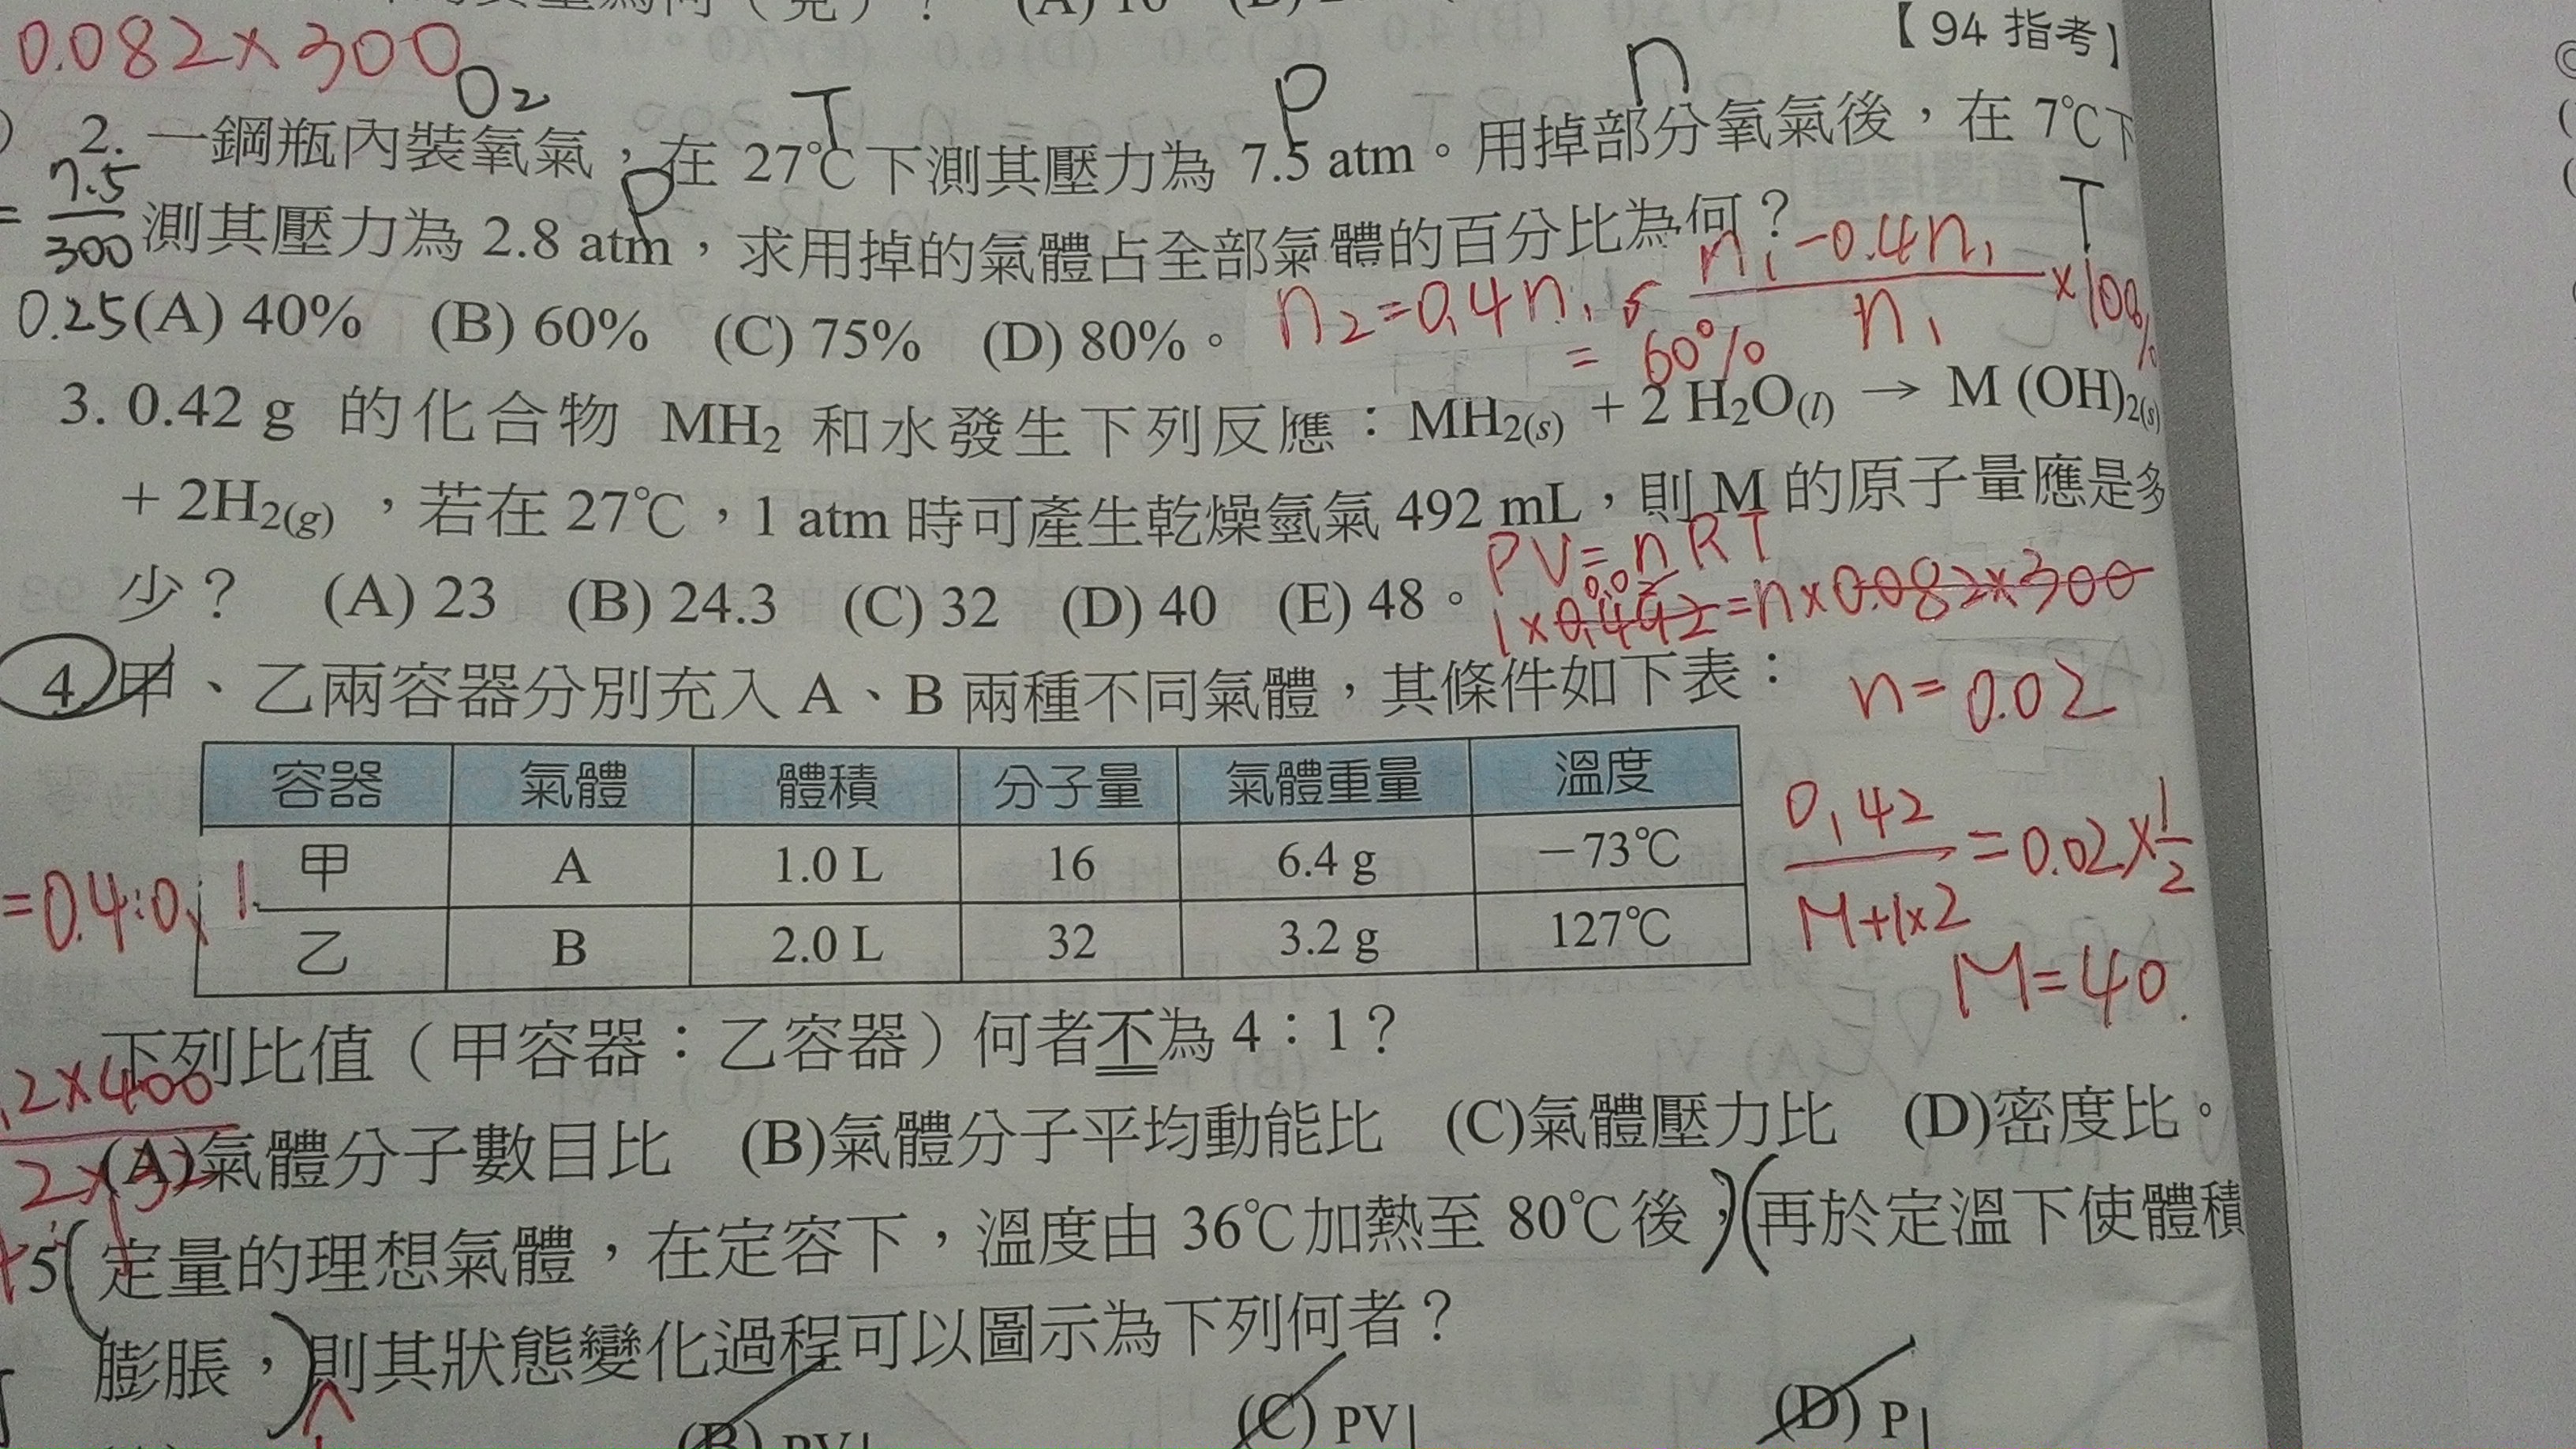 【94 指考】
0.082×300
O₂ T P n
2. 一鋼瓶內裝氧氣，在 27℃下測其壓力為 7.5 atm。用掉部分氧氣後，在 7℃下
= 7.5/300
P T
測其壓力為 2.8 atm，求用掉的氣體占全部氣體的百分比為何？
0.25
(A) 40% (B) 60% (C) 75% (D) 80%。
n₂=0.4n₁, (n₁-0.4n₁)/n₁ ×100%
= 60%
3. 0.42 g 的化合物 MH₂ 和水發生下列反應：MH₂(s) + 2 H₂O(l) → M (OH)₂(s)
+ 2H₂(g)，若在 27℃，1 atm 時可產生乾燥氫氣 492 mL，則 M 的原子量應是多
少？ (A) 23 (B) 24.3 (C) 32 (D) 40 (E) 48。
PV=nRT
0.02
1×0.492=n×0.082×300
n=0.02
0.42/(M+1×2) = 0.02×1/2
M=40.
4. 甲、乙兩容器分別充入 A、B 兩種不同氣體，其條件如下表：
容器 氣體 體積 分子量 氣體重量 溫度
甲 A 1.0 L 16 6.4 g －73℃
乙 B 2.0 L 32 3.2 g 127℃
=0.4:0.1
下列比值（甲容器：乙容器）何者不為 4：1？
2×400
2×32
(A)氣體分子數目比 (B)氣體分子平均動能比 (C)氣體壓力比 (D)密度比。
5. 定量的理想氣體，在定容下，溫度由 36℃加熱至 80℃後，再於定溫下使體積
膨脹，則其狀態變化過程可以圖示為下列何者？
(B) PV (C) PV (D) P